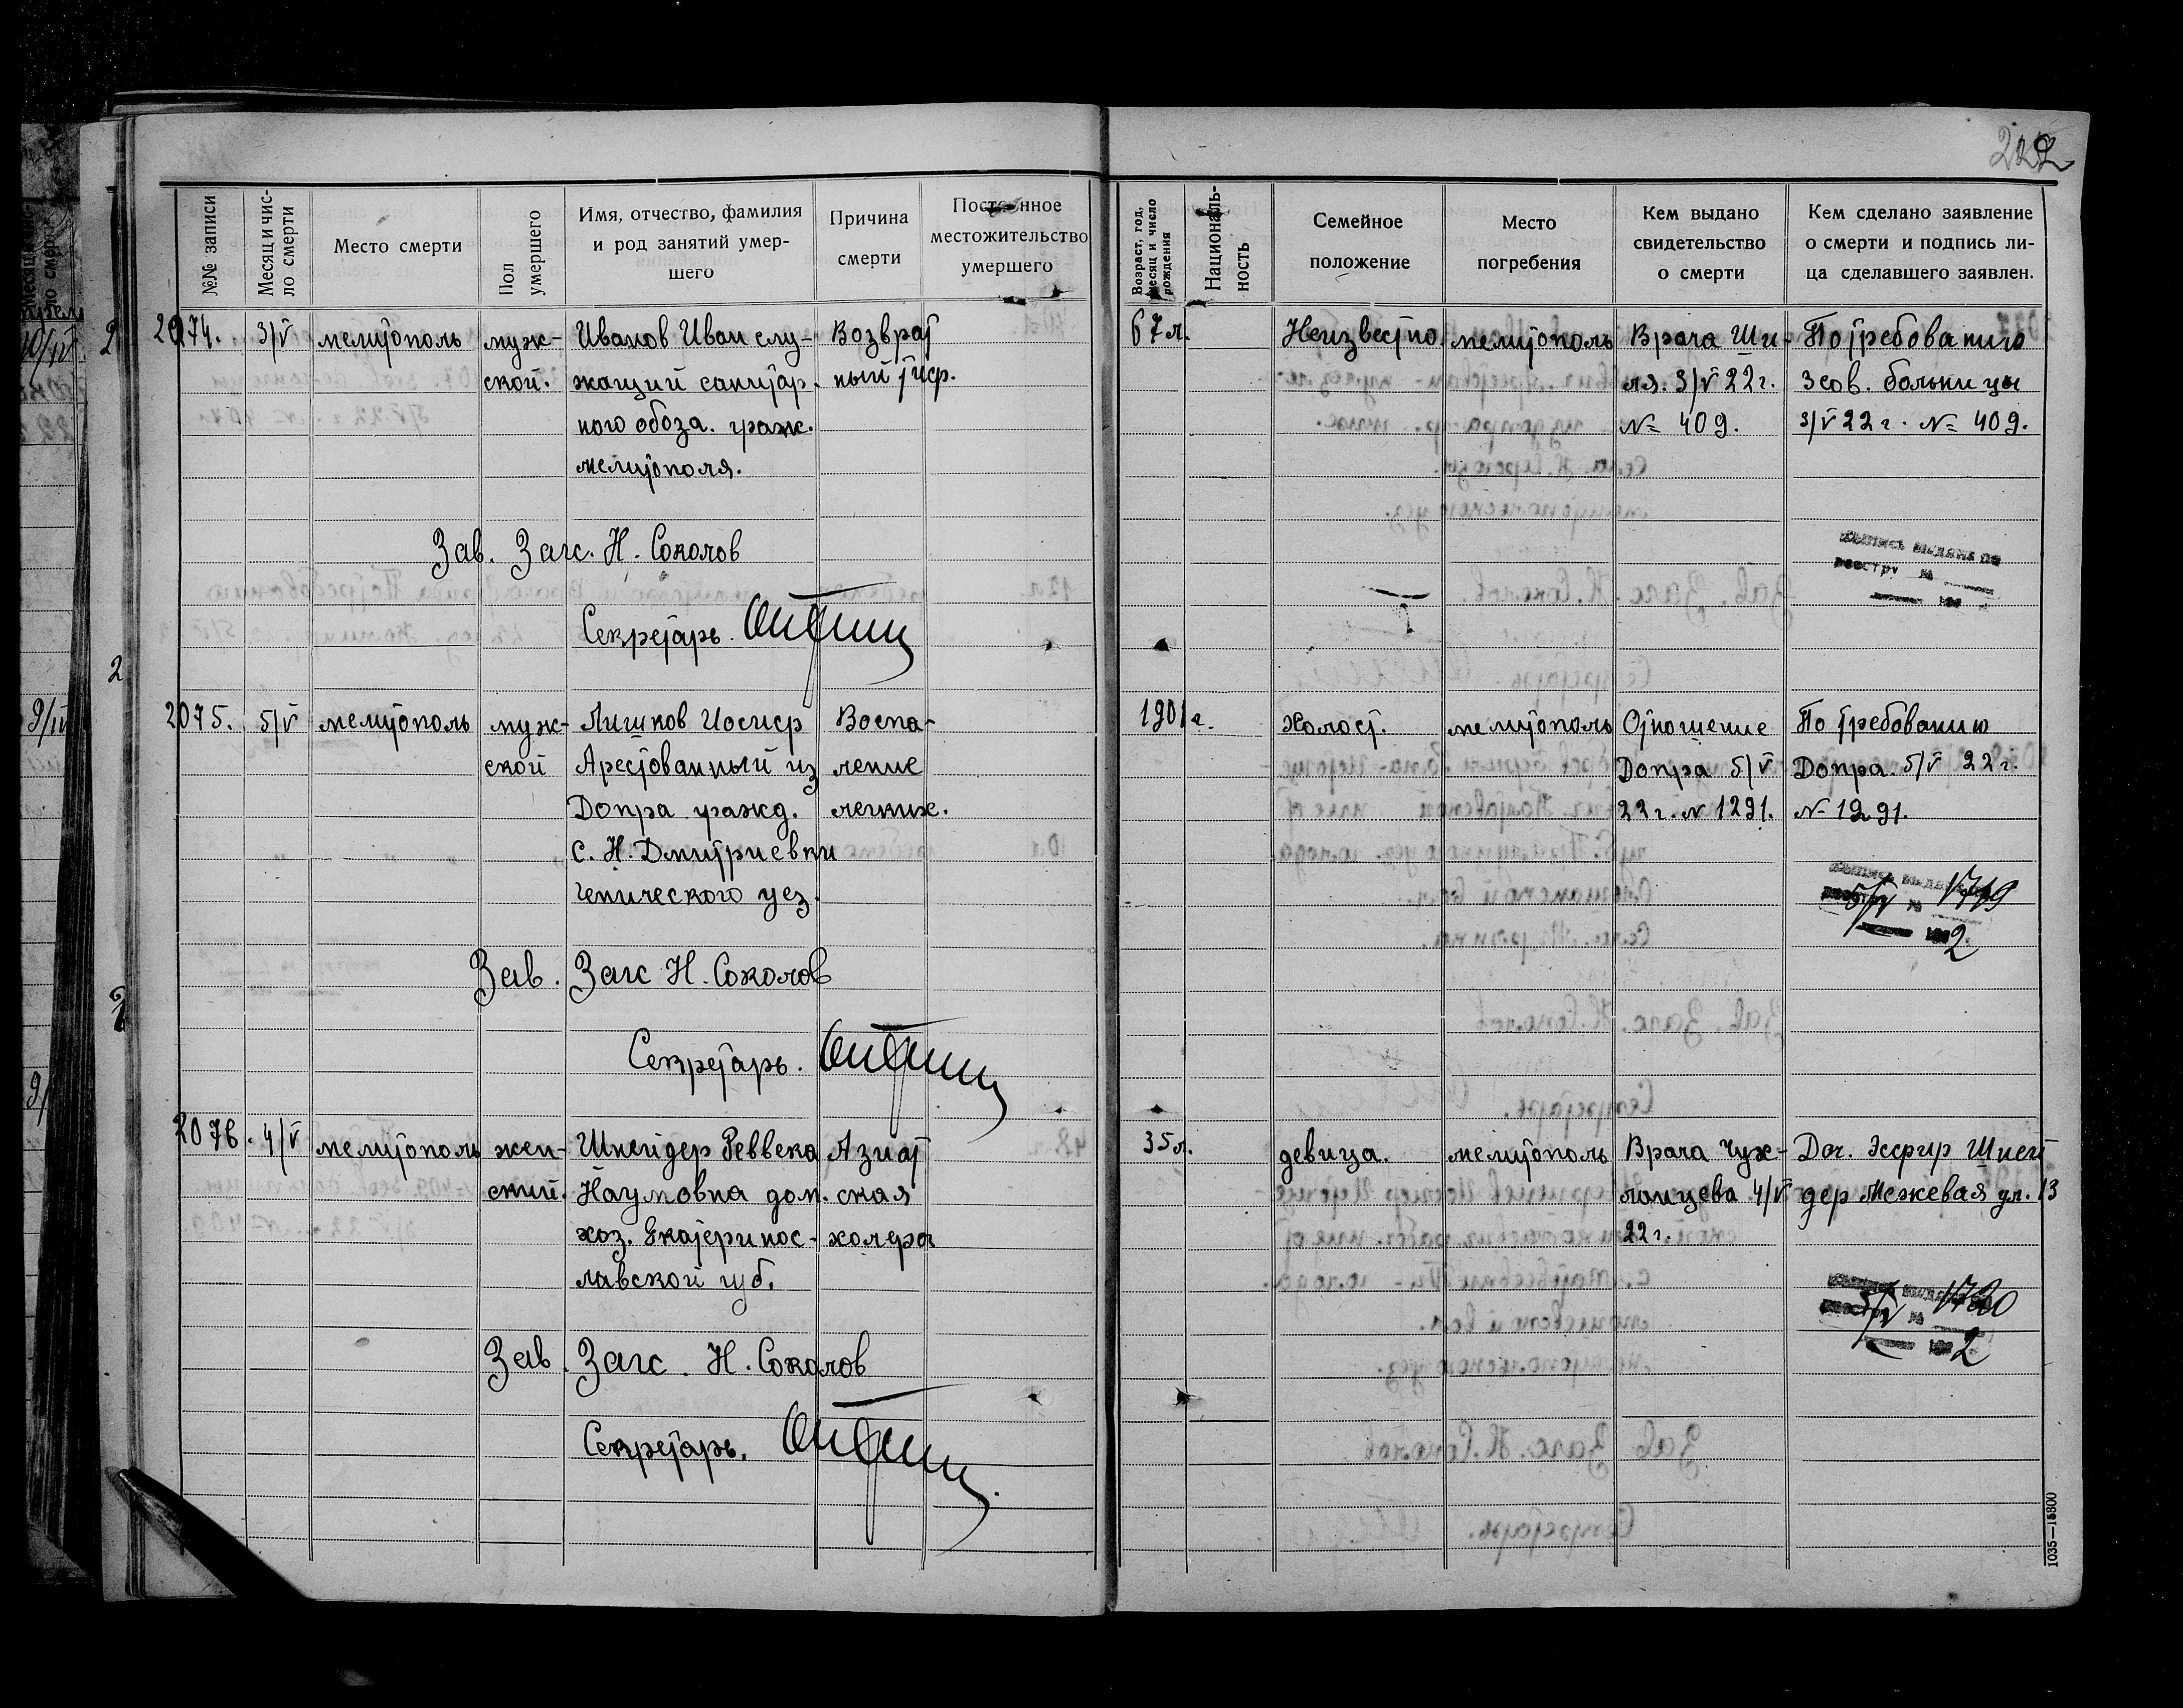 222
№№ записи
Месяц и число смерти
Место смерти
Пол умершего
Имя, отчество, фамилия и род занятий умершего
Причина смерти
Постоянное местожительство умершего
Возраст, год, месяц и число рождения
Национальность
Семейное положение
Место погребения
Кем выдано свидетельство о смерти
Кем сделано заявление о смерти и подпись лица сделавшего заявлен.
2074. 3/V мелитополь муж- Иванов Иван слу- Возврат 67 л. Неизвестно мелитополь Врача Ши- По требованию
ской. жащий санитар. ный тиф. ля. 3/V 22 г. 3 сов. больницы
ного обоза. граж. № 409. 3/V 22 г. № 409.
мелитополя.
Зав. Загс. Н. Соколов
Секретарь.
2075. 5/V мелитополь муж- Лишков Иосиф Воспа- 1901 г. Холост. мелитополь Отношение По требованию
ской Арестованный из ление Допра 5/V Допра. 5/V 22 г.
Допра гражд. легких. 22 г. № 1291. № 1291.
с. Н. Дмитриевки
генического уез.
выписка выдана по
реестру № 1719
5/V 1922
Зав. Загс Н. Соколов
Секретарь.
2076. 4/V мелитополь жен- Шнейдер Реввека Азиат 35 л. девица. мелитополь Врача Чуж- Доч. Эсфир Шней
ский. Наумовна дом. ская лонцева 4/V дер Межевая ул. 13
хоз. Екатеринос- холера 22 г.
лавской губ.
5/V 1720
2
Зав. Загс. Н. Соколов
Секретарь.
1035—15800